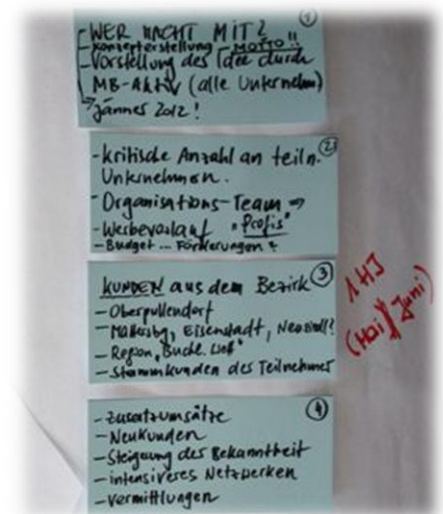 ①
- WER MACHT MIT?
- Konzepterstellung - MOTTO!!
- Vorstellung des Idee durch
MB-Aktiv (alle Unternehm)
→ Jänner 2012!
②
- kritische Anzahl an teiln.
Unternehmen.
- Organisations-Team ⇒
"Profis"
- Werbevorlauf
- Budget ... Förderungen?
③
KUNDEN aus dem Bezirk
- Oberpullendorf
- Mattersbg, Eisenstadt, Neusiedl?
- Region "Buckl. Welt"
- Stammkunden des Teilnehmer
1 HJ
(Mai/Juni)
④
- Zusatzumsätze
- Neukunden
- Steigerung des Bekanntheit
- intensiveres Netzwerken
- Vermittlungen